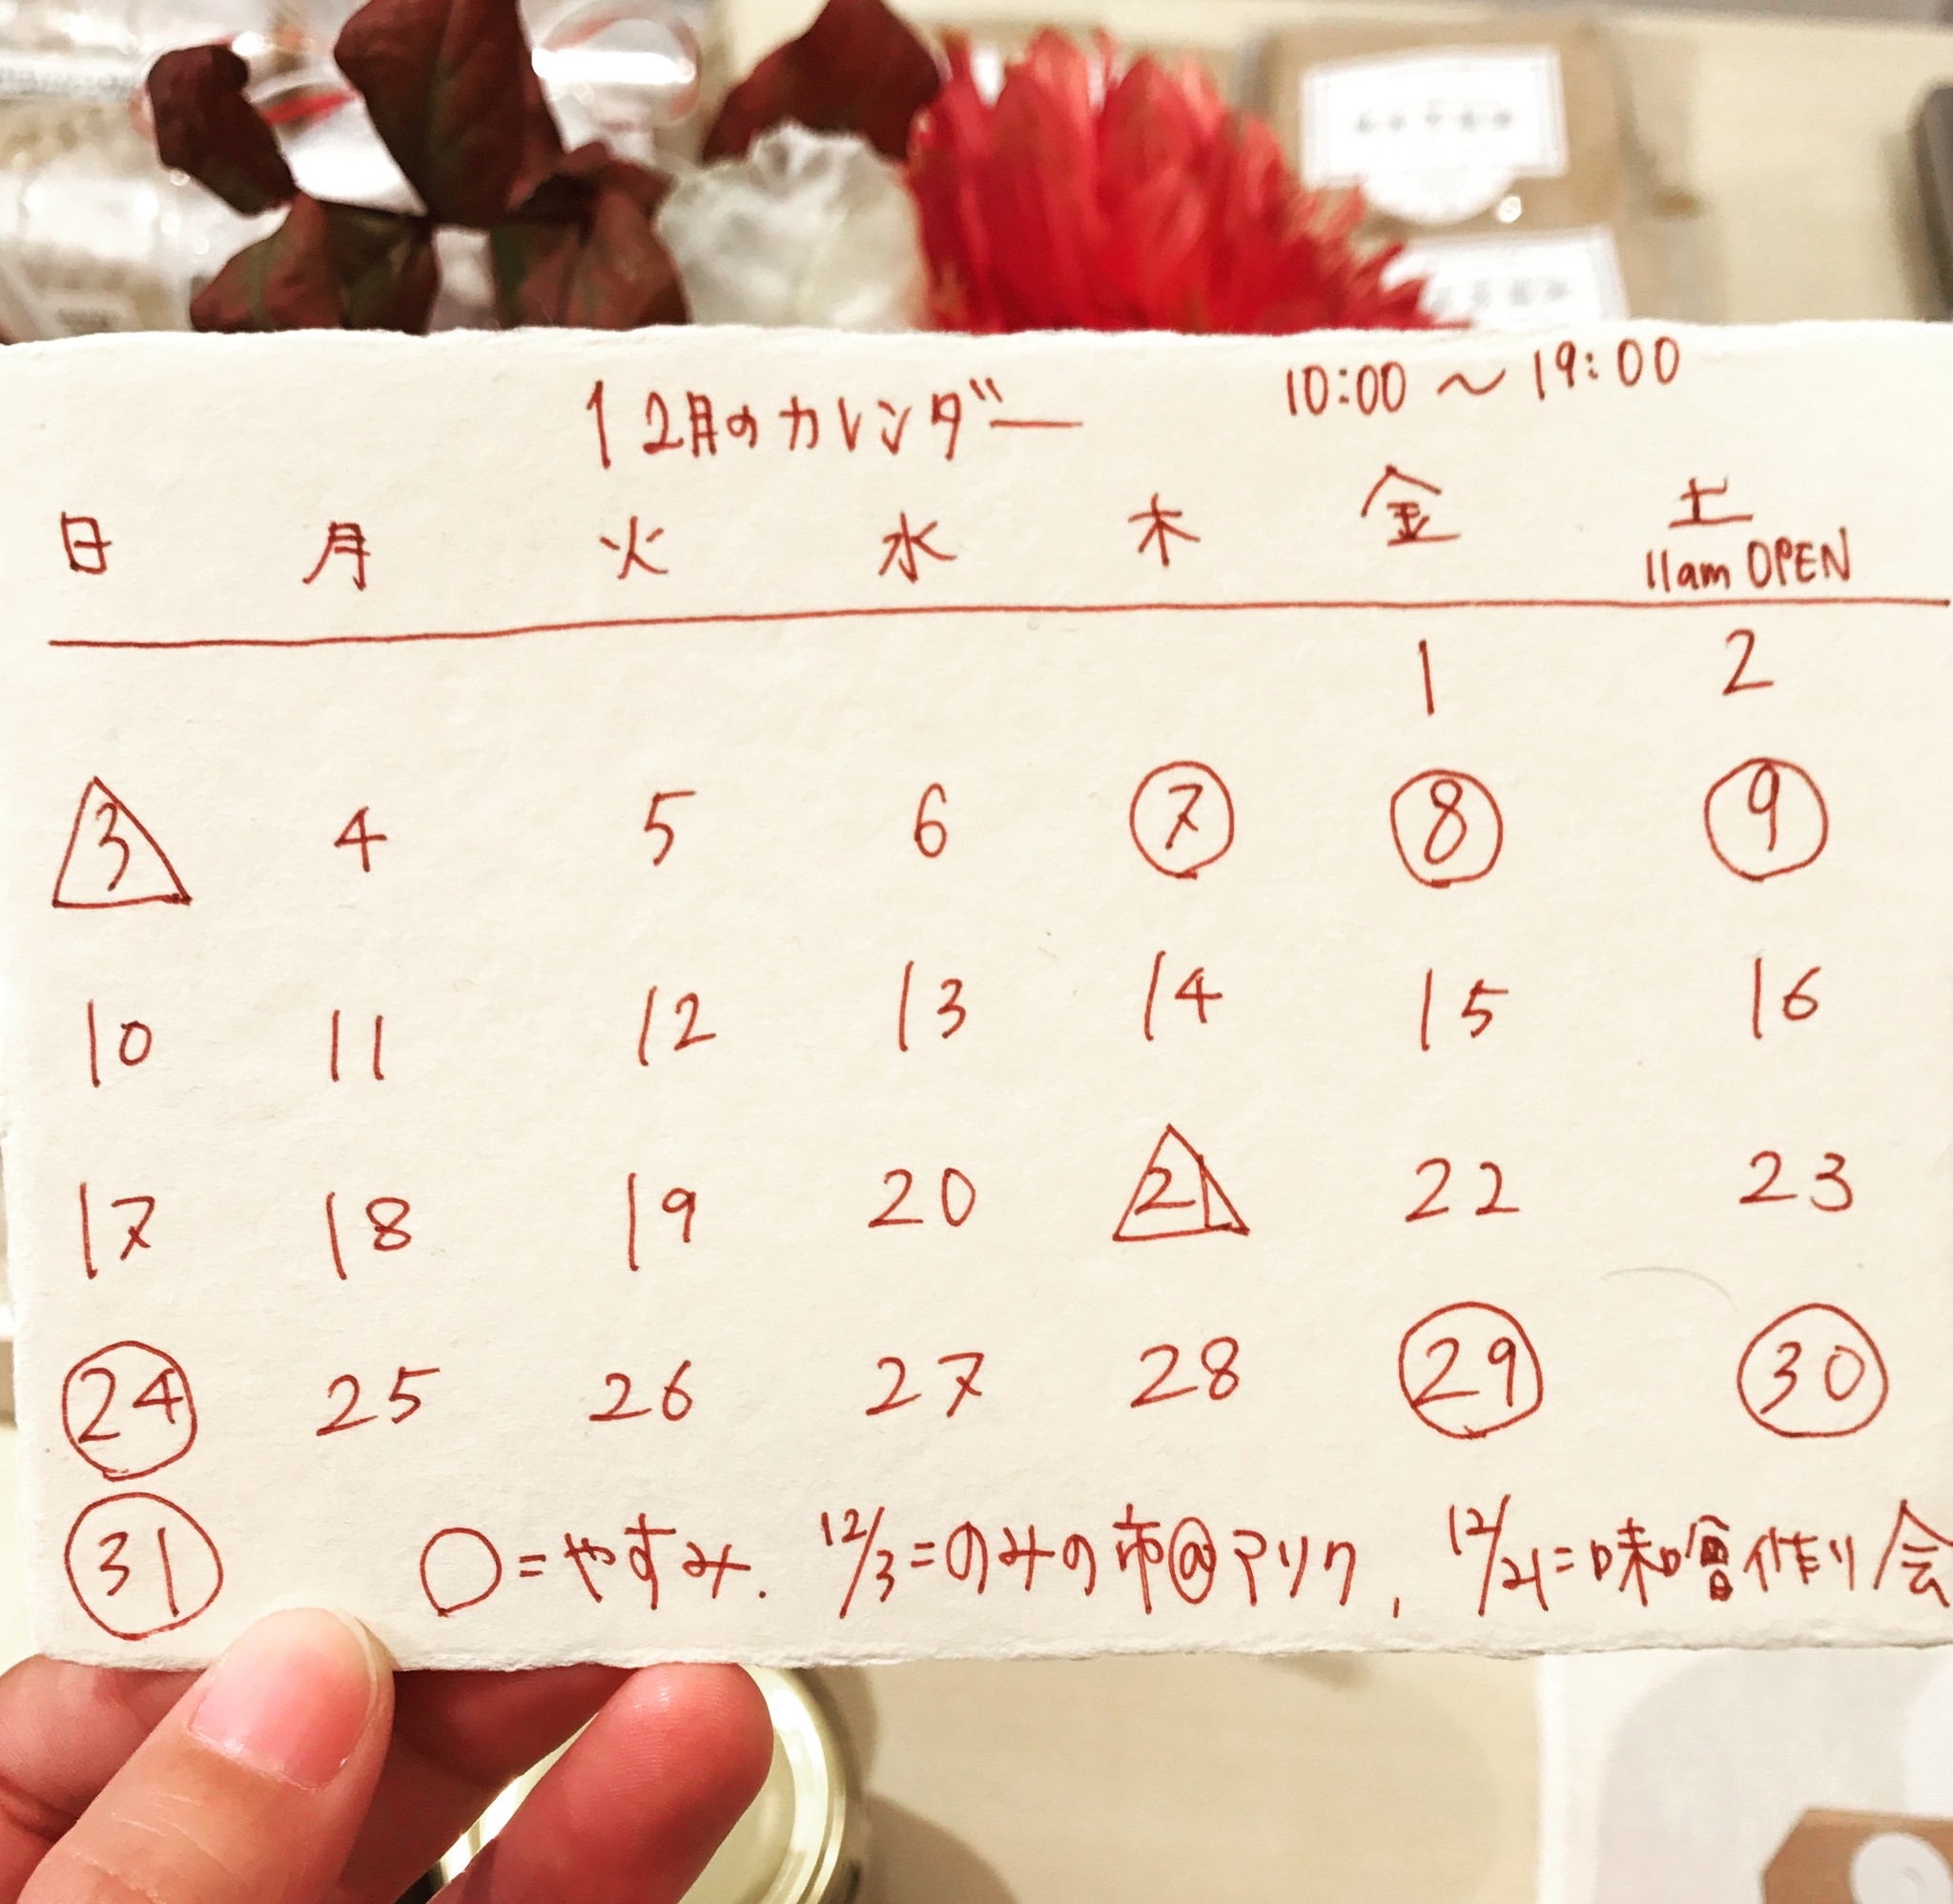 12月のカレンダー 10:00 〜 19:00
日 月 火 水 木 金 土
11am OPEN
1 2
3 4 5 6 7 8 9
10 11 12 13 14 15 16
17 18 19 20 21 22 23
24 25 26 27 28 29 30
31 ○=やすみ. 12/3=のみの市@アリク, 12/21=味噌作り会